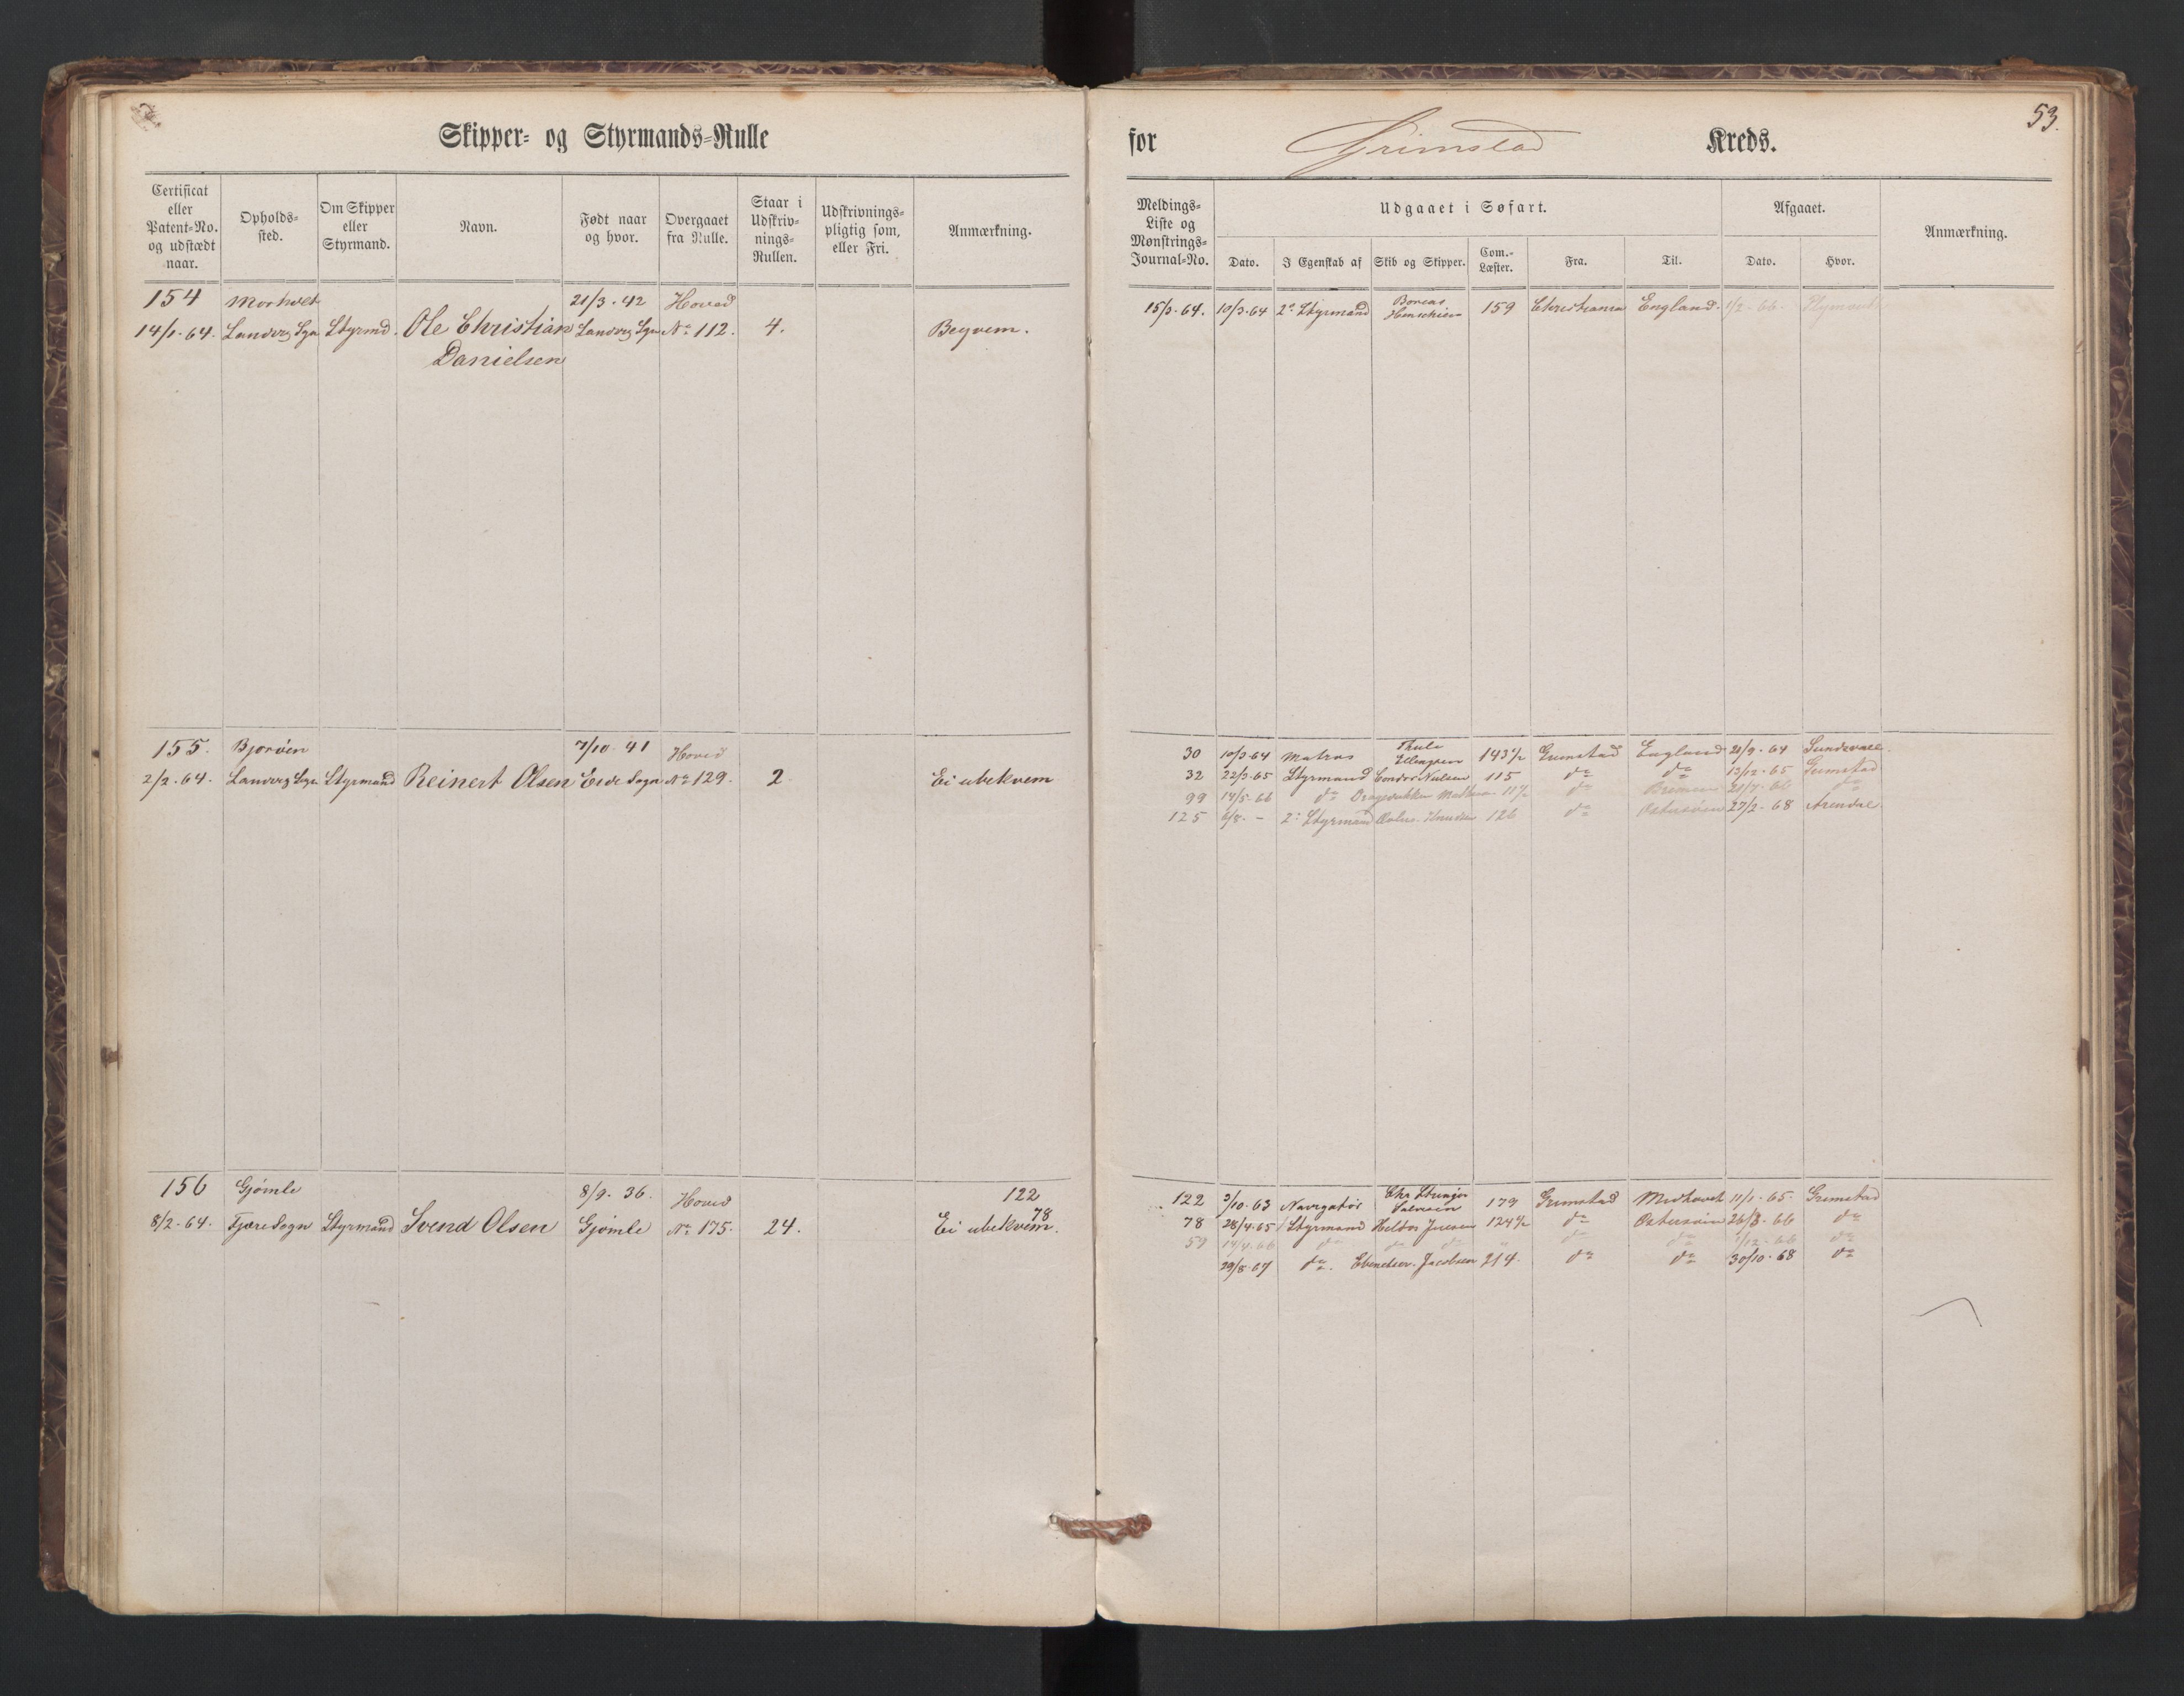 Skipper- og Styrmands-Rulle
for Grimstad Kreds.
53.
Certificat eller Patent-No. og udstædt naar.
Opholds-sted.
Om Skipper eller Styrmand.
Navn.
Født naar og hvor.
Overgaaet fra Rulle.
Staar i Udskriv-nings-Rullen.
Udskrivnings-pligtig som, eller Fri.
Anmærkning.
Meldings-Liste og Mønstrings-Journal-No.
Udgaaet i Søfart.
Dato.
I Egenskab af
Skib og Skipper.
Com.-Læster.
Fra.
Til.
Afgaaet.
Dato.
Hvor.
Anmærkning.
154 Morholt 21/3-42 Hoved
14/1-64. Landvig Sgn Styrmd. Ole Christian Landvig Sgn No 112. 4. Beqvem.
Danielsen
15/3-64. 10/3-64 2den Styrmand Boreas 159 Christiania England. 1/2-66
155. Bjorøen 7/10 41 Hoved
2/2-64. Landvig Sogn Styrmand Reinert Olsen Eide Sogn No 129. 2 Ei ubekvem
30 10/3-64 Matros Thule 143 1/2 Grimstad England 21/9-64 Sundsvall
32 22/3-65 Styrmand Condor Nielsen 115 do do 13/12-65 Grimstad
99 14/5-66 do do Bremen 21/7-66 do
125 6/8- - 2: Styrmand 126 do Østersøen 27/2-68 Arendal.
156 Gjømle 8/9-36. Hoved 122
78
8/2-64. Fjære Sogn Styrmand Svend Olsen Gjømle No 175. 24. Ei ubekvem.
122 3/10-63 Navigatør 179 Grimstad 11/1-65 Grimstad
78 28/4-65 Styrmand 124 1/2 do Østersøen 26/3-66 do
59 14/4-66 do do do do do 1/12-66 do
29/8-67 do. Ebenetser. Jacobsen 214. do do 30/10-68 do